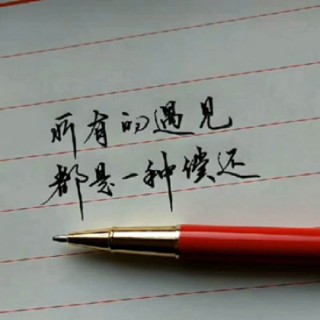 所有的遇见
都是一种偿还